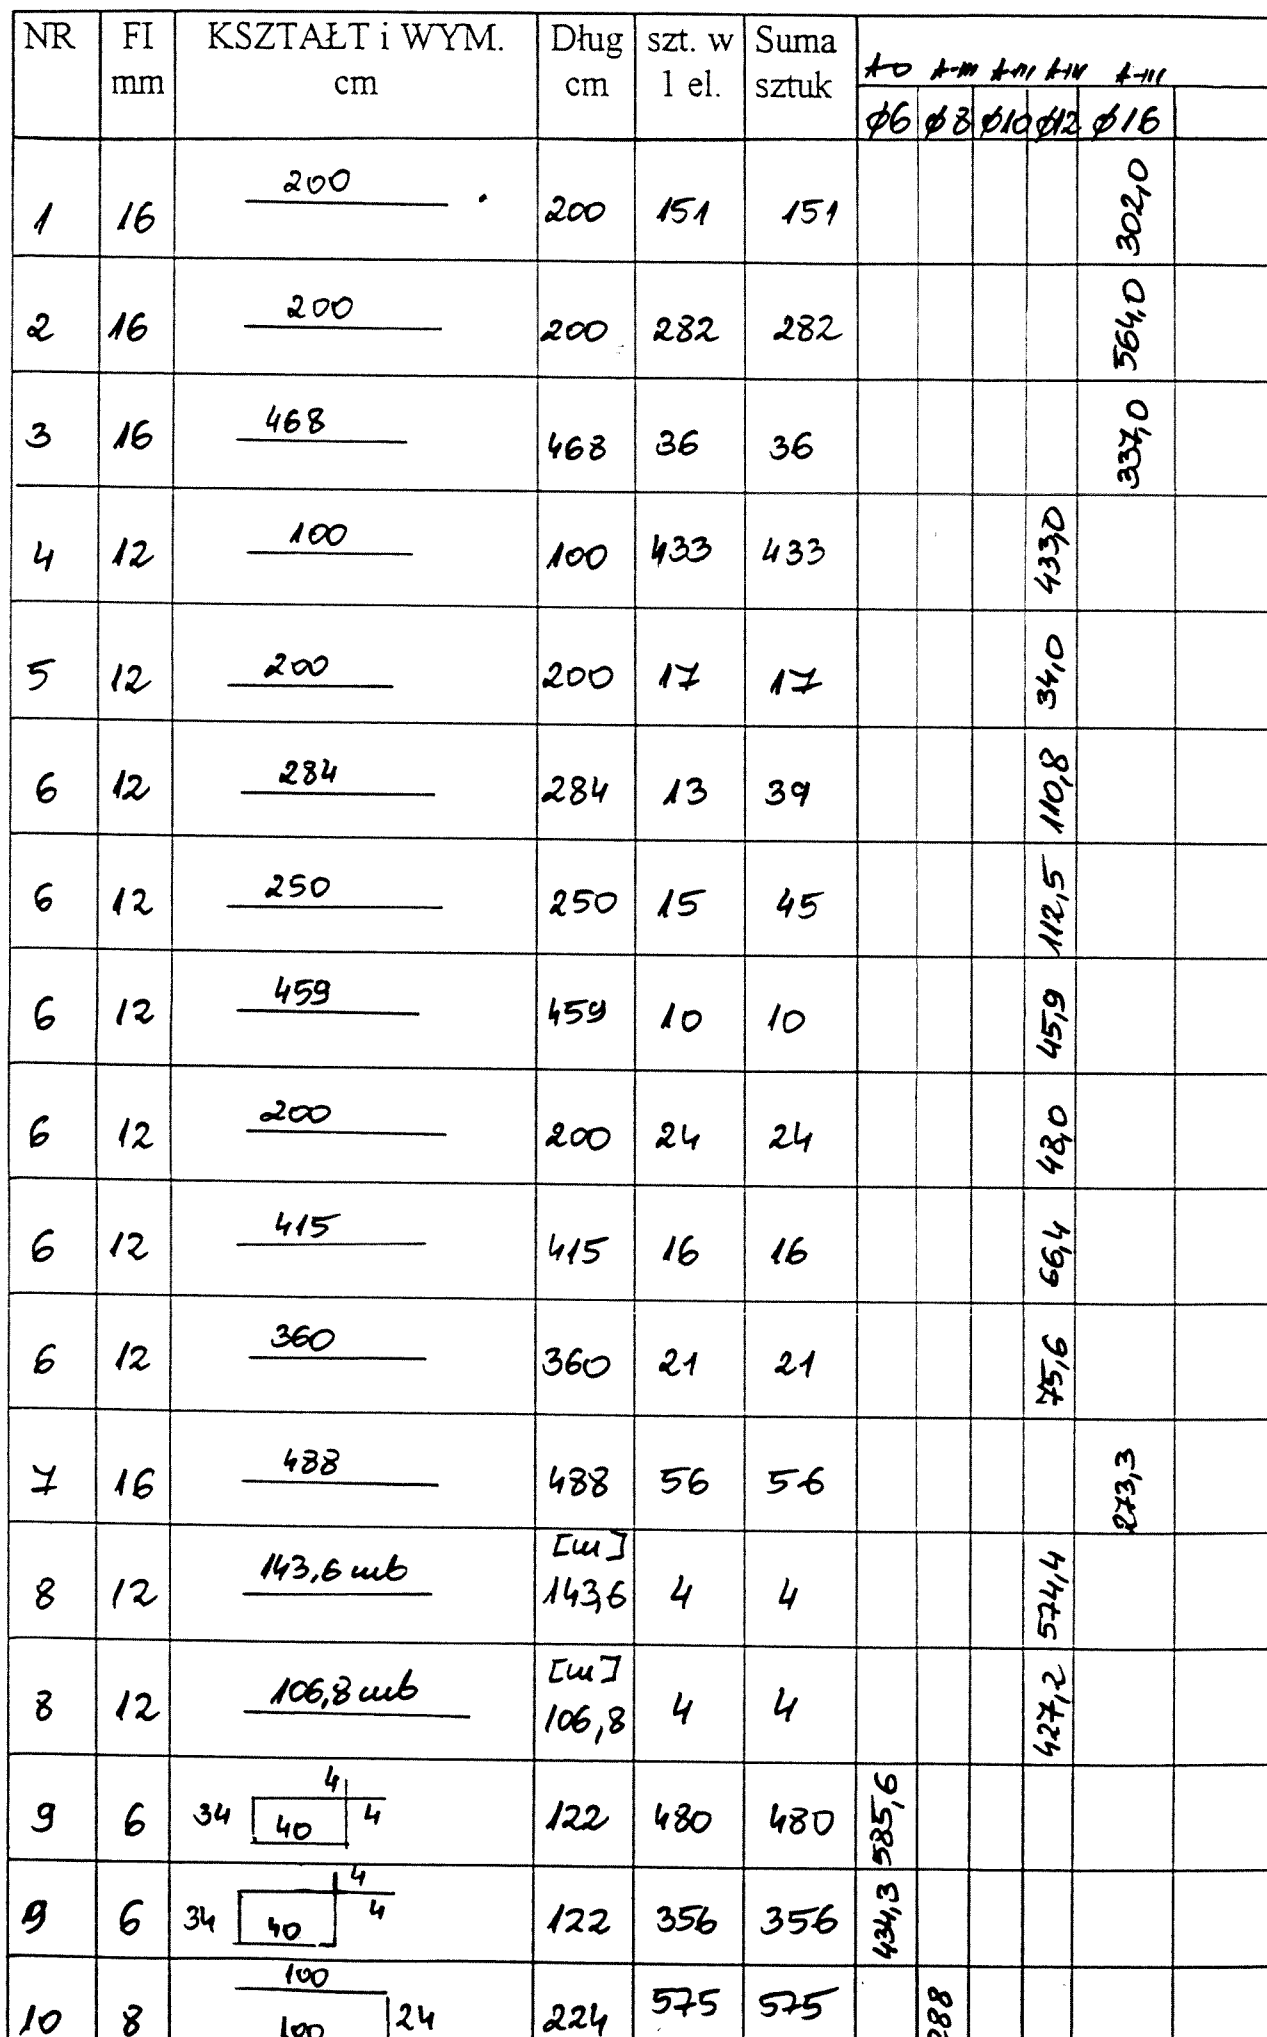 NR FI mm KSZTAŁT i WYM. cm Dług cm szt. w 1 el. Suma sztuk
A-0 A-III A-III A-III A-III
ϕ6 ϕ8 ϕ10 ϕ12 ϕ16
1 16 200 200 151 151 302,0
2 16 200 200 282 282 564,0
3 16 468 468 36 36 337,0
4 12 100 100 433 433 433,0
5 12 200 200 17 17 34,0
6 12 284 284 13 39 110,8
6 12 250 250 15 45 112,5
6 12 459 459 10 10 45,9
6 12 200 200 24 24 48,0
6 12 415 415 16 16 66,4
6 12 360 360 21 21 75,6
7 16 488 488 56 56 273,3
8 12 143,6 mb [m] 143,6 4 4 574,4
8 12 106,8 mb [m] 106,8 4 4 427,2
9 6 34 40 4 4 122 480 480 585,6
9 6 34 40 4 4 122 356 356 434,3
10 8 100 100 24 224 575 575 288